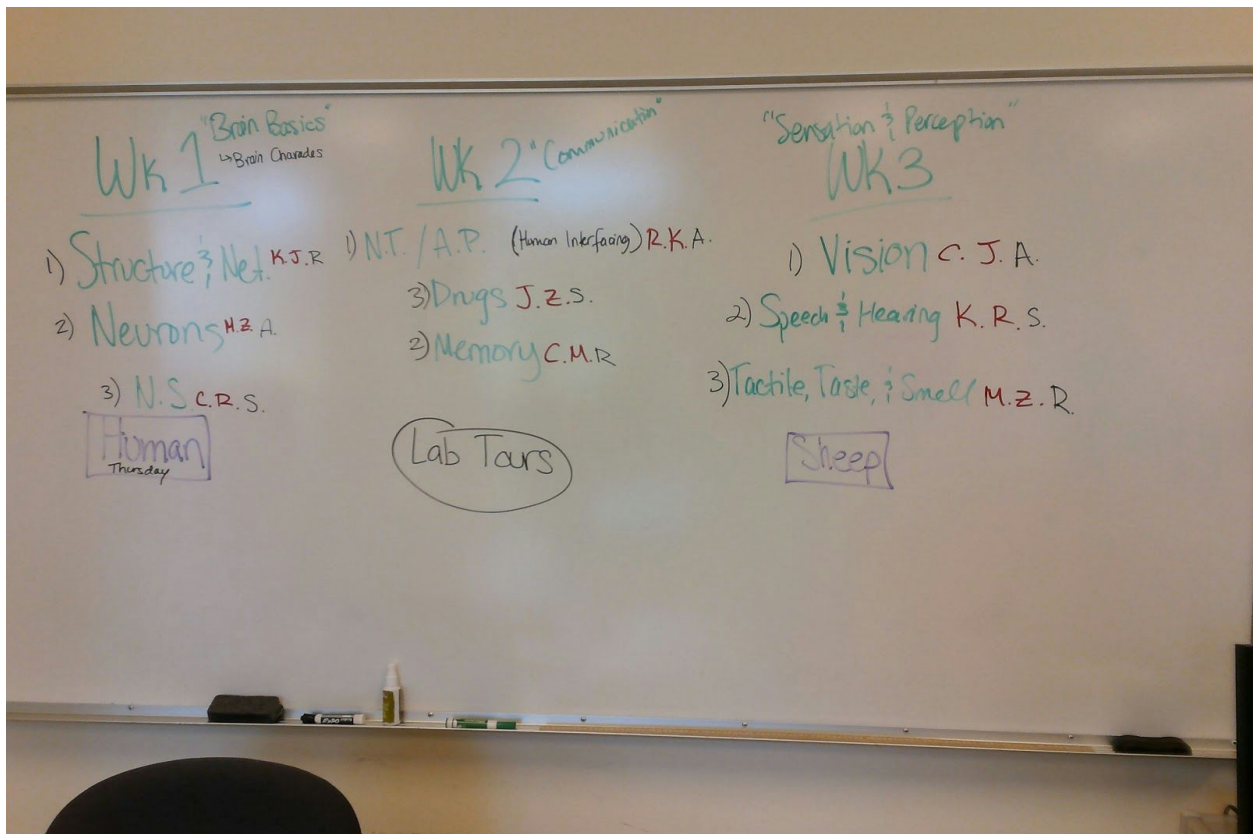 "Brain Basics"
Wk 1
↳Brain Charades
1) Structure & Net. K.J.R
2) Neurons M.Z. A.
3) N.S C.R.S.
Human
Thursday
Wk 2 "Communication"
1) N.T. / A.P. (Human Interfacing) R.K.A.
3) Drugs J.Z.S.
2) Memory C.M.R
Lab Tours
"Sensation & Perception"
Wk 3
1) Vision C. J. A.
2) Speech & Hearing K. R. S.
3) Tactile, Taste, & Smell M.Z.R.
Sheep